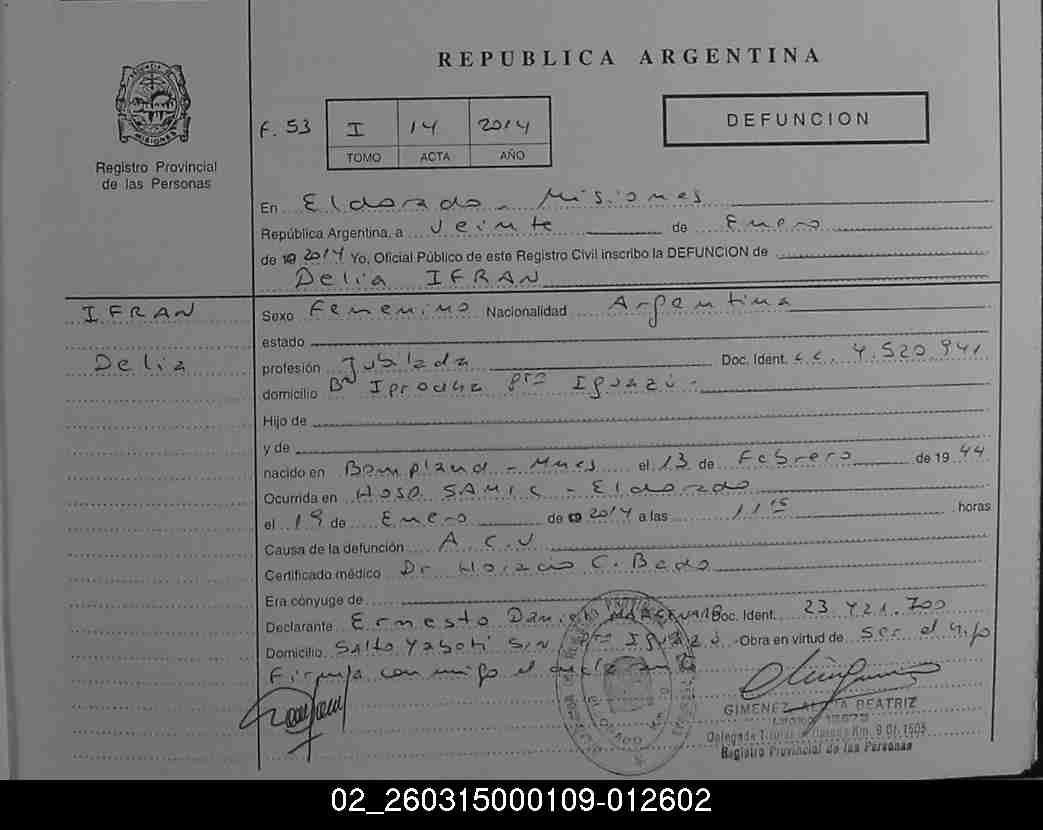 REPUBLICA ARGENTINA
PROVINCIA DE MISIONES
Registro Provincial
de las Personas
F. 53 I 14 2014
TOMO ACTA AÑO
DEFUNCION
En Eldorado - Misiones
República Argentina, a veinte de Enero
de 2014 Yo, Oficial Público de este Registro Civil inscribo la DEFUNCION de
Delia IFRAN
IFRAN
Delia
Sexo Femenino Nacionalidad Argentina
estado
profesión Jubilada Doc. Ident. L.C. 4.520.941
domicilio Bº Iprodha Pto Iguazú.
Hijo de
y de
nacido en Bompland - Mnes el 13 de Febrero de 1944
Ocurrida en Hosp SAMIC - Eldorado
el 19 de Enero de 2014 a las 11 15 horas
Causa de la defunción A C V
Certificado médico Dr Horacio C. Bado
Era cónyuge de
Declarante Ernesto Daniel Doc. Ident. 23 421 700
Domicilio Salto Yabotí S/N Pto Iguazú Obra en virtud de ser el hijo
Firma conmigo el declarante
GIMENEZ BEATRIZ
Registro Provincial de las Personas
02_260315000109-012602